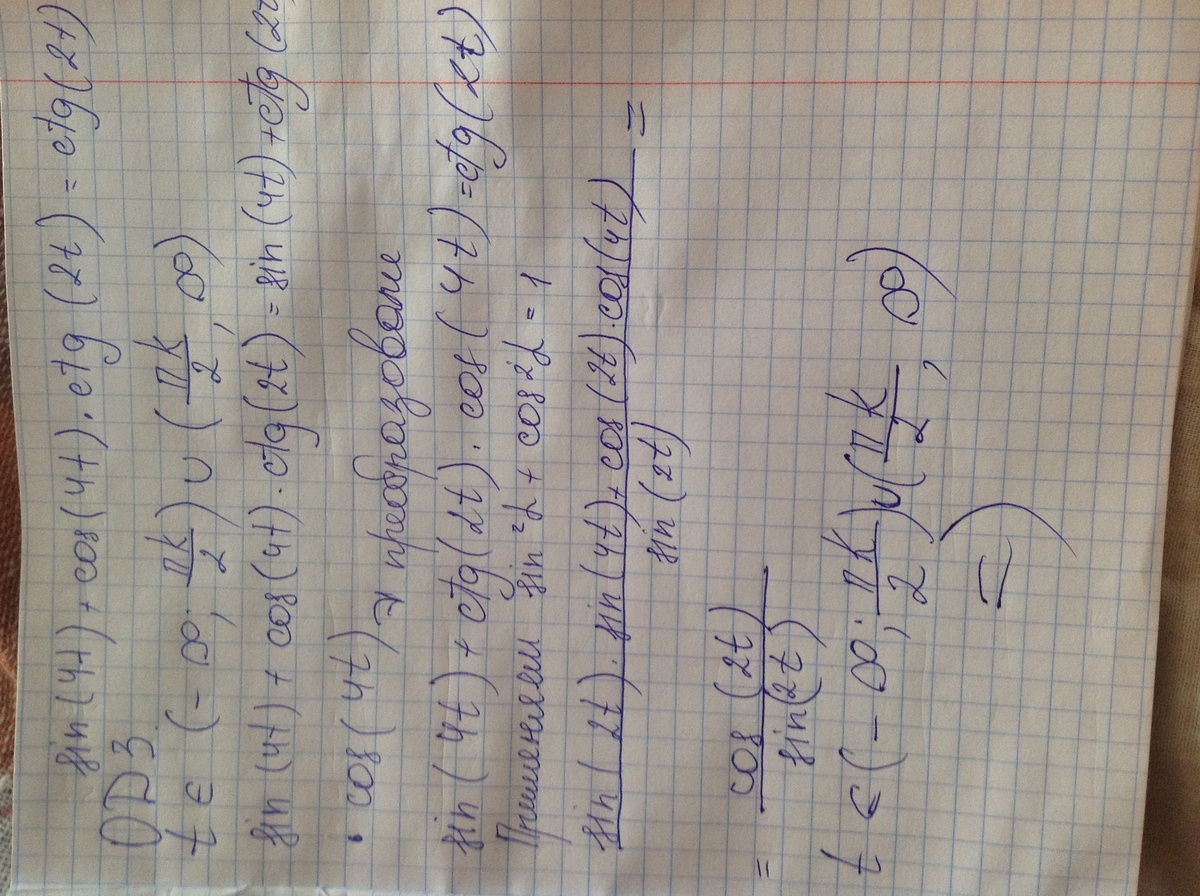 sin(4t) + cos(4t) · ctg(2t) = ctg(2t)
ОДЗ
t ∈ (-∞; πk/2) ∪ (πk/2, ∞)
sin(4t) + cos(4t) · ctg(2t) = sin(4t) + ctg(2t)
· cos(4t) → преобразование
sin(4t) + ctg(2t) · cos(4t) = ctg(2t)
Применяем sin²α + cos²α = 1
sin(2t) · sin(4t) + cos(2t) · cos(4t) / sin(2t) =
= cos(2t) / sin(2t)
t ∈ (-∞; πk/2) ∪ (πk/2, ∞)
=)